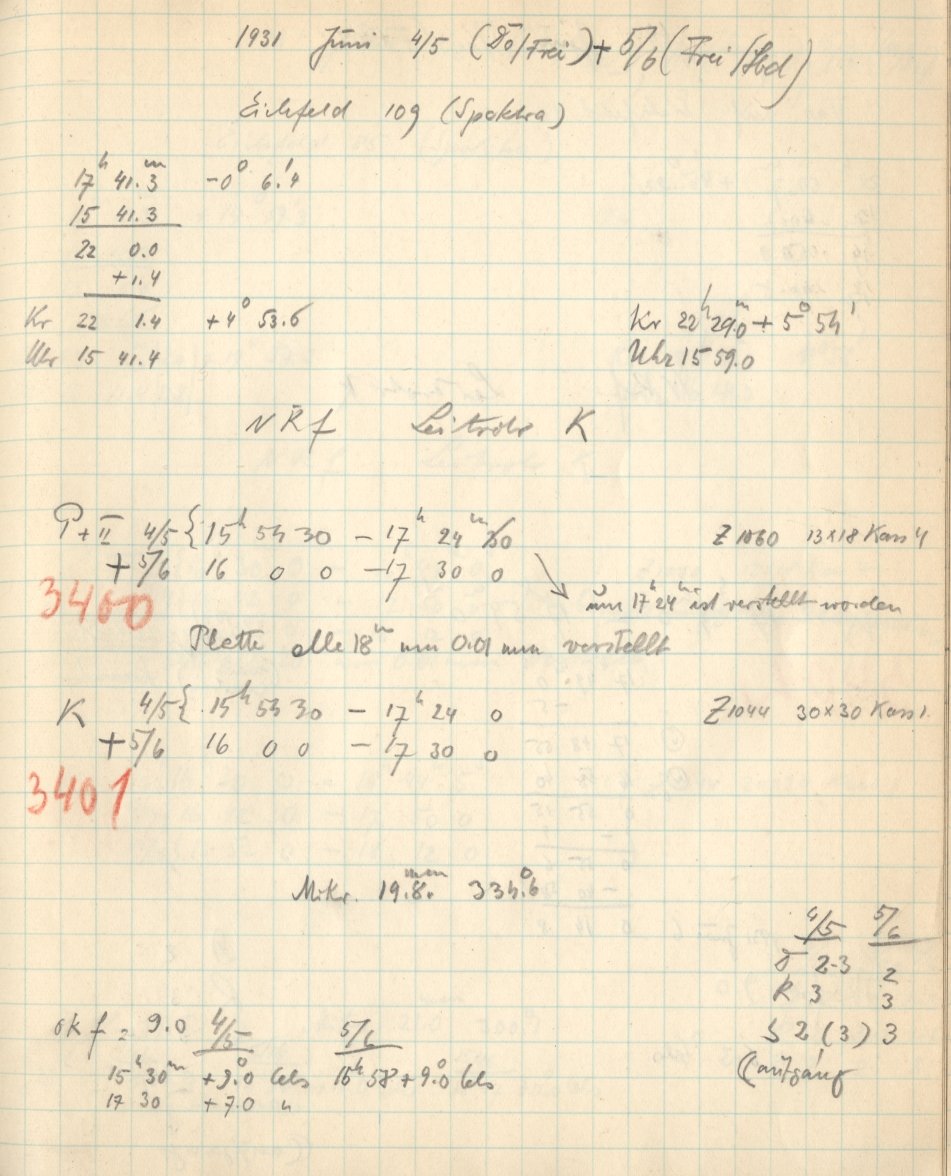 1931 Juni 4/5 (Do/Frei) + 5/6 (Frei/Sbd)
Eichfeld 109 (Spektra)
17h 41.m3 -0° 6.'4
15 41.3
22 0.0
+1.4
Kr 22 1.4 +4° 53.6
Uhr 15 41.4
Kr 22h 29.m0 + 5° 54'
Uhr 15 59.0
NRf Leitrohr K
P+II 4/5 { 15h 54 30 - 17h 24m 30 Z 1060 13x18 Kass 4
+ 5/6 16 0 0 - 17 30 0
3400
um 17h 24m ist verstellt worden
Platte alle 18m um 0.01 mm verstellt
K 4/5 { 15h 54 30 - 17h 24 0 Z 1044 30x30 Kass 1.
+ 5/6 16 0 0 - 17 30 0
3401
Mikr. 19.mm8. 334.°6
4/5 5/6
2-3 2
R 3 3
S 2 (3) 3
okf = 9.0 4/5 5/6
15h 30m +9.°0 Cels 15h 58 +9.°0 Cels
17 30 +7.0 "